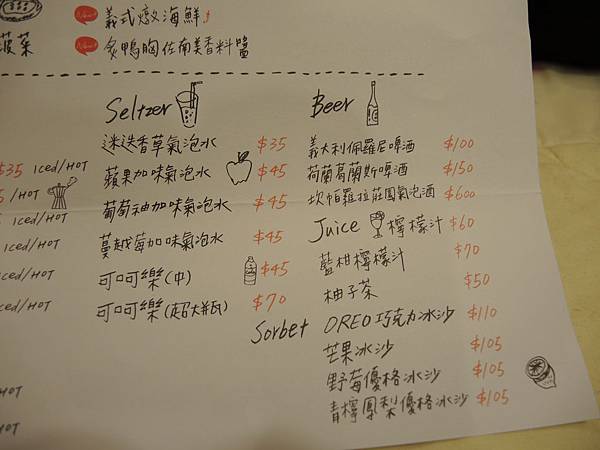 New! 義式燉海鮮
菠菜
New! 炙鴨胸佐南美香料醬
Seltzer
迷迭香草氣泡水 $35
蘋果加味氣泡水 $45
葡萄柚加味氣泡水 $45
蔓越莓加味氣泡水 $45
可口可樂(中) $45
可口可樂(超大瓶) $70
$35 Iced/HOT
/HOT
Iced/HOT
Iced/HOT
Iced/HOT
Iced/HOT
HOT
HOT
Beer
義大利佩羅尼啤酒 $100
荷蘭葛蘭斯啤酒 $150
坎帕羅拉莊園氣泡酒 $600
Juice 檸檬汁 $60
藍柑檸檬汁 $70
柚子茶 $50
Sorbet OREO巧克力冰沙 $110
芒果冰沙 $105
野莓優格冰沙 $105
青檸鳳梨優格冰沙 $105